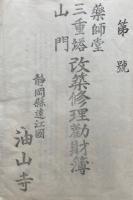 第 號
藥師堂
三重塔
山門
改築修理勸財簿
靜岡縣遠江國
油山寺